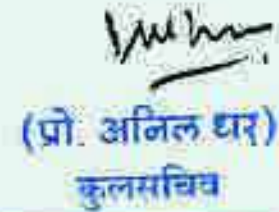 (प्रो. अनिल धर)
कुलसचिव